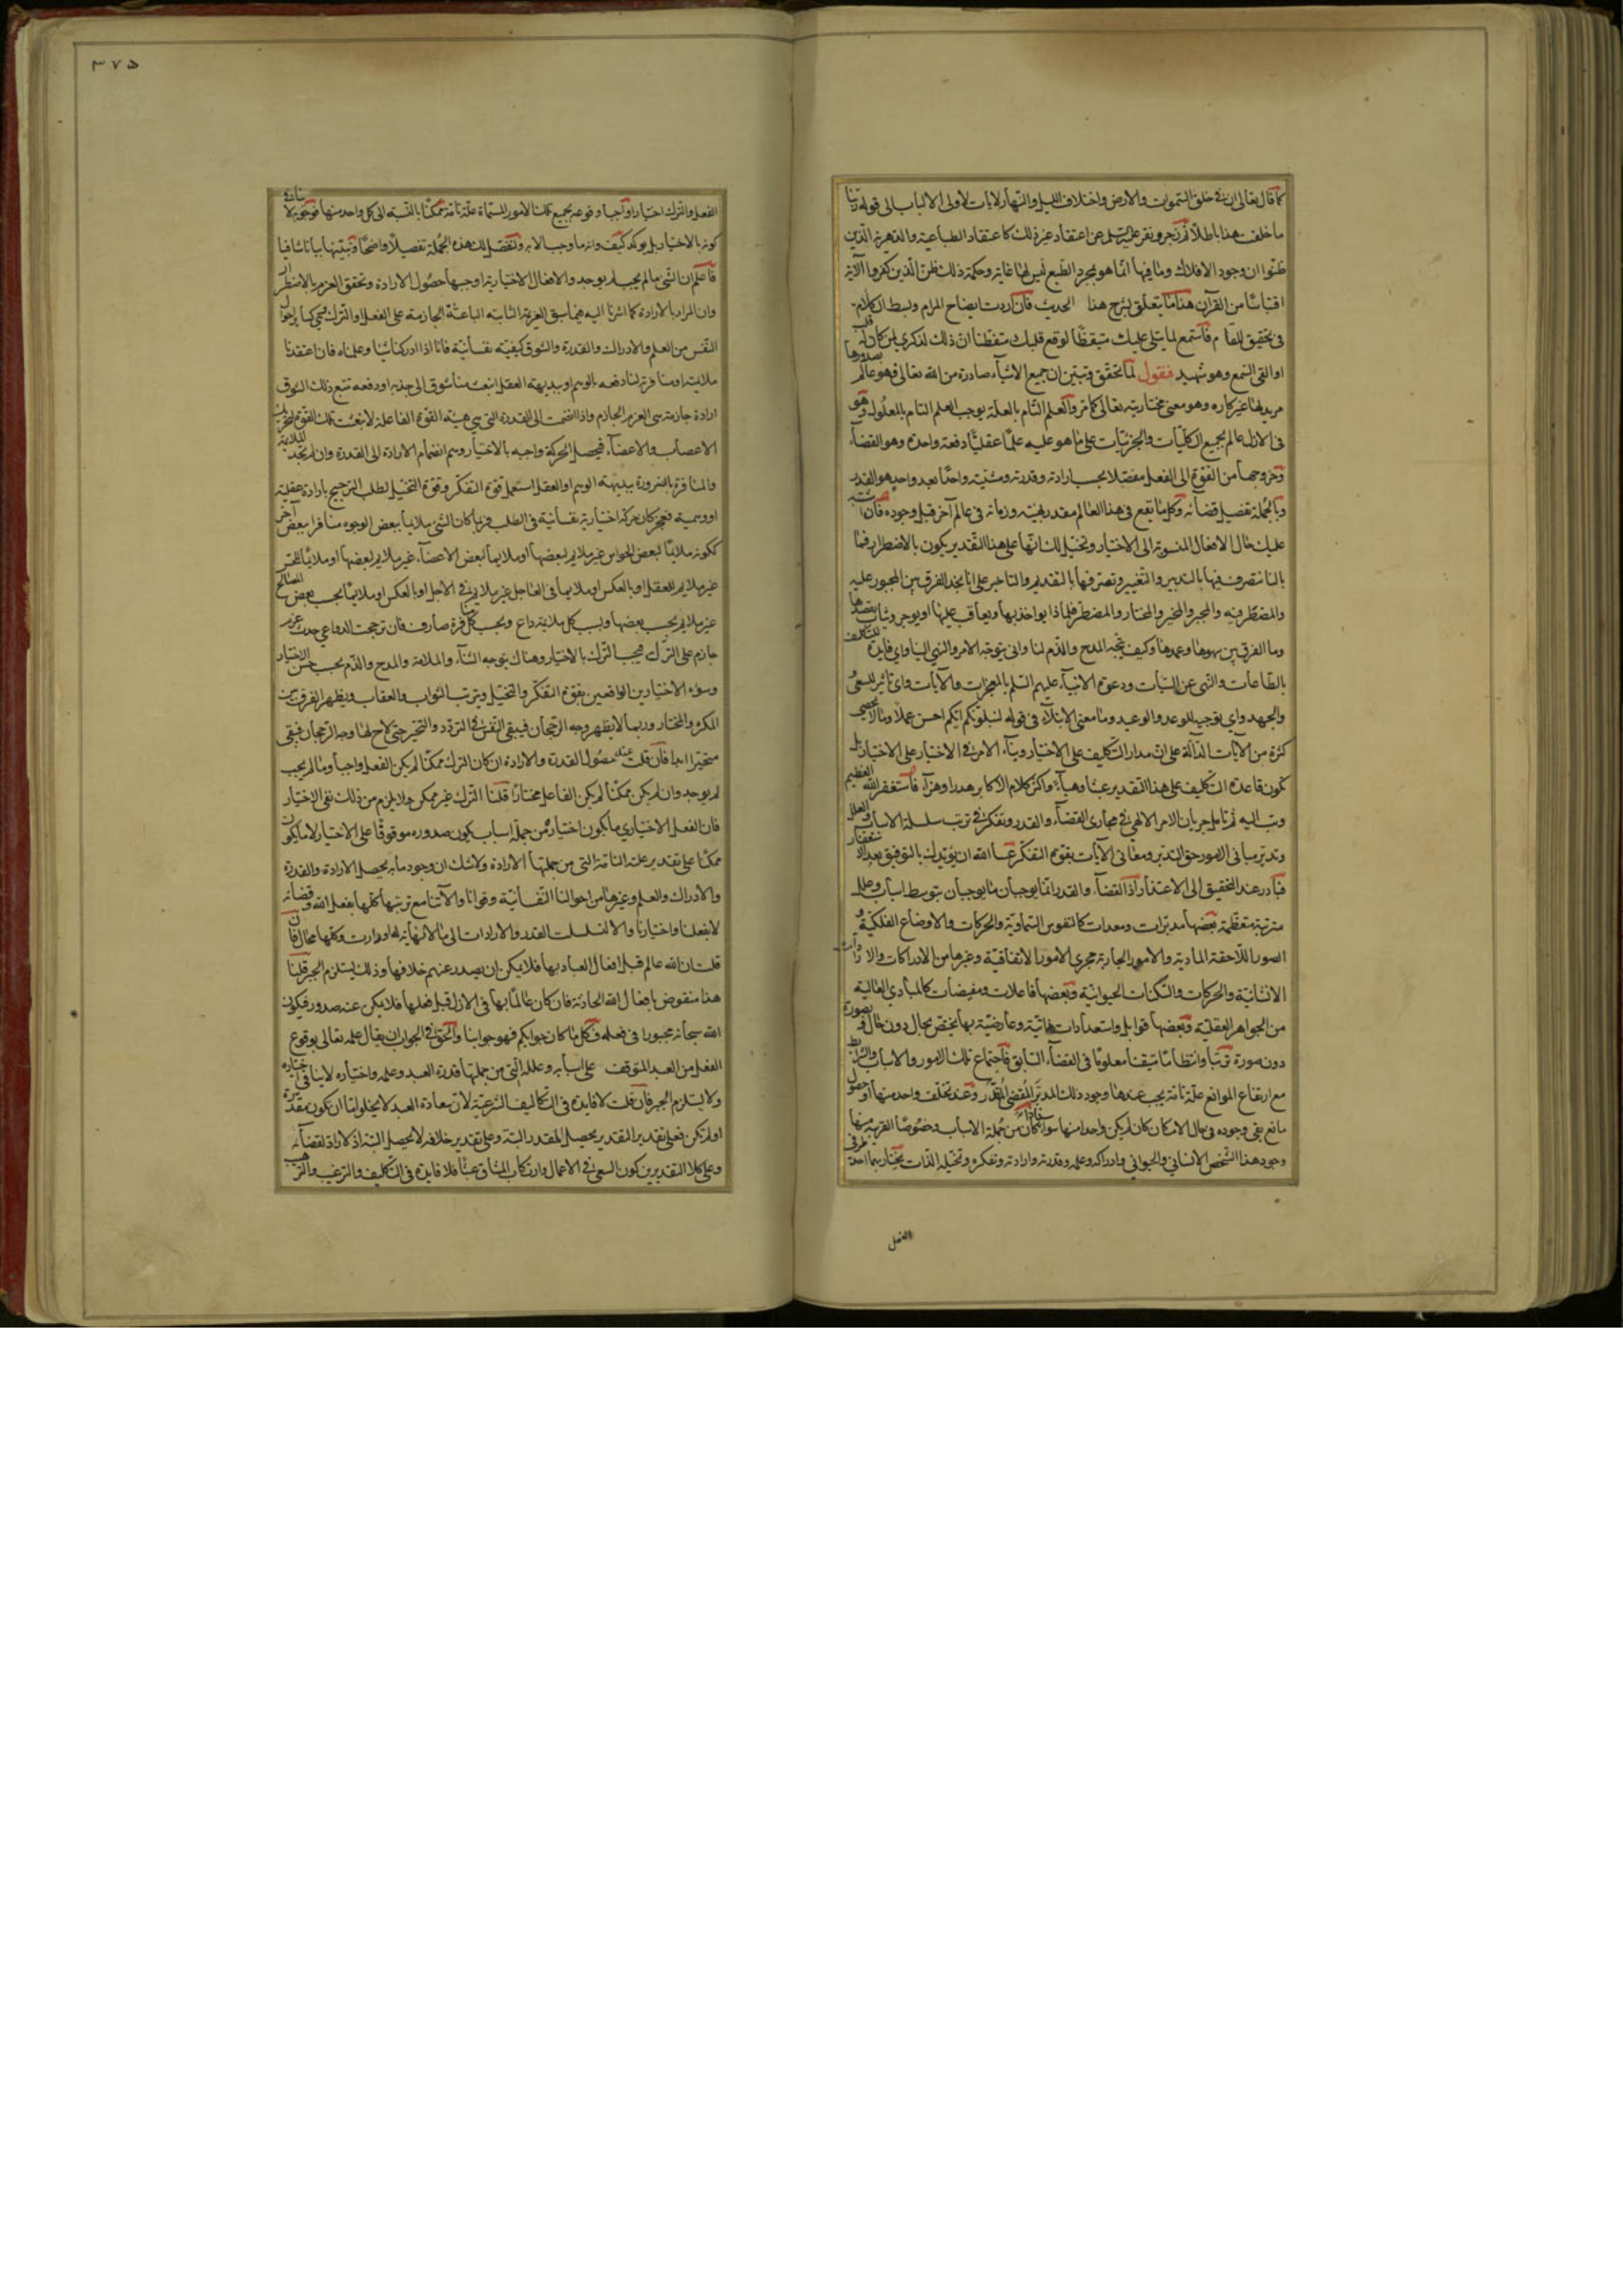 كما قال تعالى ان في خلق السموات والارض واختلاف الليل والنهار لايات لاولى الالباب الى قوله ربنا
ما خلقت هذا باطلا ثم زجر ونفر عن اعتقاد غيره ذلك كاعتقاد الطباعية والدهرية الذين
ظنوا ان وجود الافلاك وما فيها انما هو بمجرد الطبع ليس لها غاية وحكمة ذلك ظن الذين كفروا الآية
اقتباسا من القرآن هذا ما يتعلق بشرح هذا الحديث فان اردت ايضاح المرام وبسط الكلام
فى تحقيق المقام فاستمع لما يتلى عليك متيقظا لوقع قلبك متفطنا ان ذلك لذكرى لمن كان له قلب
او القى السمع وهو شهيد فنقول لما تحقق وتبين ان جميع الاشياء صادرة من الله تعالى فهو عالم بصدورها
مريد لها غير كاره وهو معنى مختاريته تعالى كما مر والعلم التام بالعلة يوجب العلم التام بالمعلول وهو
فى الازل عالم بجميع الكليات والجزئيات على ما هو عليه علما عقليا دفعة واحدة وهو القضاء
وخروجها من القوة الى الفعل مفصلا بحسب ارادته وقدرته ومشيته واحدا بعد واحد هو القدر
وبالجملة تفصيل قضائه وكل ما يقع فى هذا العالم مقدر بهيئته وزمانه فى عالم آخر قبل وجوده فان اشتبه
عليك حال الافعال المنسوبة الى الاختيار وتخيل لك انها على هذا التقدير يكون بالاضطرار فما
بالنا نتصرف فيها بالتدبير والتغيير ونصرفها بالتقديم والتاخير على انا نجد الفرق بين المجبور عليه
والمضطر فيه والمجبر والمخير والمختار والمضطر فلماذا يواخذ بها ويعاقب عليها او يوجر ويثاب بقصدها
وما الفرق بين سهوها وعمدها وكيف يتجه المدح والذم لنا وانى يتوجه الامر والنهى الينا واى فايدة للتكليف
بالطاعات والنهى عن السيئات ودعوة الانبياء عليهم السلم بالمعجزات والآيات واى تاثير للسعى
والجهد واى توجيه للوعد والوعيد وما معنى الابتلاء فى قوله ليبلوكم ايكم احسن عملا وما لا يحصى
كثرة من الآيات الدالة على ان مدار التكليف على الاختيار وبناء الامر فى الاختبار على الاختيار بل
تكون قاعدة التكليف على هذا التقدير عبثا وهباء واكثر كلام الاكابر هدرا وهزاء فاستغفر الله العظيم
وتب اليه ثم تامل جريان الامر الالهى فى مجارى القضاء والقدر وتفكر فى ترتب سلسلة الاسباب والعلل
وتدبر مبانى الامور حق التدبر ومعانى الآيات بقوة التفكر عسى الله ان يؤيدك بالتوفيق بعد الاستغفار
فبادر عند التحقيق الى الاعتذار اذ القضاء والقدر انما يوجبان ما يوجبان بتوسط اسباب وعلل
مترتبة منتظمة بعضها مدبرات ومعدات كالنفوس السماوية والحركات والاوضاع الفلكية و
الصور اللاحقة المادية والامور الجارية مجرى الامور الاتفاقية وغيرها من الادراكات والارادات
الانسانية والحركات والسكنات الحيوانية وبعضها فاعلات ومفيضات كالمبادى العالية
من الجواهر العقلية وبعضها قوابل واستعدادات ذاتية وعارضية بها تختص بحال دون حال وبصورة
دون صورة ترتبا وانتظاما متيقنا معلوما فى القضاء السابق فاجتماع تلك الامور والاسباب والشرايط
مع ارتفاع الموانع علة تامة يجب عندها وجود ذلك المدبر المقضى المقدر وعند تخلف واحد منها او حصول
مانع بقى وجوده فى حال الامكان كان لم يكن واحد منها فاذا كان من جملة الاسباب وخصوصا القريبة منها
وجود هذا الشخص الانسانى والحيوانى وادراكه وعلمه وقدرته وارادته وتفكره وتخيله الذات يختار بهما احد طرفى
الفعل
٣٧٥
الفعل والترك اختيارا واجبا وقوعه بجميع تلك الامور المسماة علة تامة ممكنا بالنسبة الى كل واحد منها فوجوبه لا ينافى
كونه بالاختيار بل يوكده كيف وانه ما وجب الا به ولنفصل لك هذه الجملة تفصيلا واضحا ونبينها بيانا شافيا
فاعلم ان الشئ ما لم يجب لم يوجد والافعال الاختيارية اوجبها حصول الارادة وتحقق العزم بالاضطرار
وان المراد بالارادة كما اشرنا اليه فيما سبق العزيمة الثابتة الباعثة الجازمة على الفعل او الترك
النفس من العلم والادراك والقدرة والشوق كيفية نفسانية فانا اذا ادركنا شيئا وعلمناه فان اعتقدنا
ملايمته او منافرته لنا دفعة بالوهم او ببديهة العقل انبعث منا شوق الى جذبه او دفعه تتبع ذلك الشوق
ارادة جازمة هى العزم الجازم واذا انضمت الى القدرة التى هى هيئة القوة الفاعلة لانبعثت تلك القوة لتحريك
الاعصاب والاعضاء فيحصل الحركة واجبة بالاختيار وهم انضمام الارادة الى القدرة وان لم تجد الملايمة
والمنافرة بالضرورة ببديهة الوهم او العقل استعمل قوة التفكر وقوة التخيل لطلب الترجيح بارادة عقلية
او وهمية فتحركان حركة اختيارية نفسانية فى الطلب فربما كان الشئ ملايما ببعض الوجوه منافرا ببعض آخر
ككونه ملايما لبعض الحواس غير ملايم لبعضها او ملايما لبعض الاعضاء غير ملايم لبعضها او ملايما للحس
غير ملايم للعقل او بالعكس او ملايما فى العاجل غير ملايم فى الاجل او بالعكس او ملايما بحسب بعض المصالح
غير ملايم بحسب بعضها وبسبب كل ملايمة داع وبحسب كل منافرة صارف فان ترجحت الدواعى حدث عزم
جازم على الترك فيجب الترك بالاختيار وهناك يتوجه الثناء والملامة والمدح والذم بحسب حسن الاختيار
وسوء الاختيارين الواقعين بقوة التفكر والتخيل ويترتب الثواب والعقاب ويظهر الفرق بين
المكره والمختار وربما لا يظهر وجه الرجحان فيبقى النفس فى التردد والتحير حتى لاح لها وجه الرجحان فيبقى
متحيرا ابدا فان قلت عند حصول القدرة والارادة ان كان الترك ممكنا لم يكن الفعل واجبا وما لم يجب
لم يوجد وان لم يكن ممكنا لم يكن الفاعل مختارا قلنا الترك غير ممكن ولا يلزم من ذلك نفى الاختيار
فان الفعل الاختيارى ما يكون اختياره من جملة اسباب يكون صدوره موقوفا على الاختيار لا ما يكون
ممكنا على تقدير علته التامة التى من جملتها الارادة ولا شك ان وجود ما به يحصل الارادة والقدرة
والادراك والعلم وغيرها من احوالنا النفسانية وقوانا وآلاتنا مع ترتبها كلها بفعل الله وقضائه
لا بفعلنا واختيارنا والا لتسلسلت القدر والارادات الى ما لا نهاية لها ودارت وكلها محال فان
قلت ان الله عالم قبل افعال العباد بها فلا يمكن ان يصدر عنهم خلافها وذلك يستلزم الجبر قلنا
هذا منقوض بافعال الله الحادثة فان كان عالما بها فى الازل قبل فعلها فلا يمكن عنه صدور فيكون
الله سبحانه مجبورا فى فعله فكل ما كان جوابكم فهو جوابنا والحق فى الجواب ان يقال علمه تعالى بوقوع
الفعل من العبد المتوقف على اسبابه وعلله التى من جملتها قدرة العبد وعلمه واختياره لا ينافى اختياره
ولا يستلزم الجبر فان قلت لا فايدة فى التكاليف الشرعية لان سعادة العبد لا يخلو اما ان يكون مقدرة
او لم تكن فعلى تقدير التقدير يحصل المقدر البتة وعلى تقدير خلافه لا يحصل البتة اذ لا راد لقضائه
وعلى كلا التقديرين كون السعى فى الاعمال وارتكاب المشاق عبثا فلا فايدة فى التكليف والترغيب والترهيب